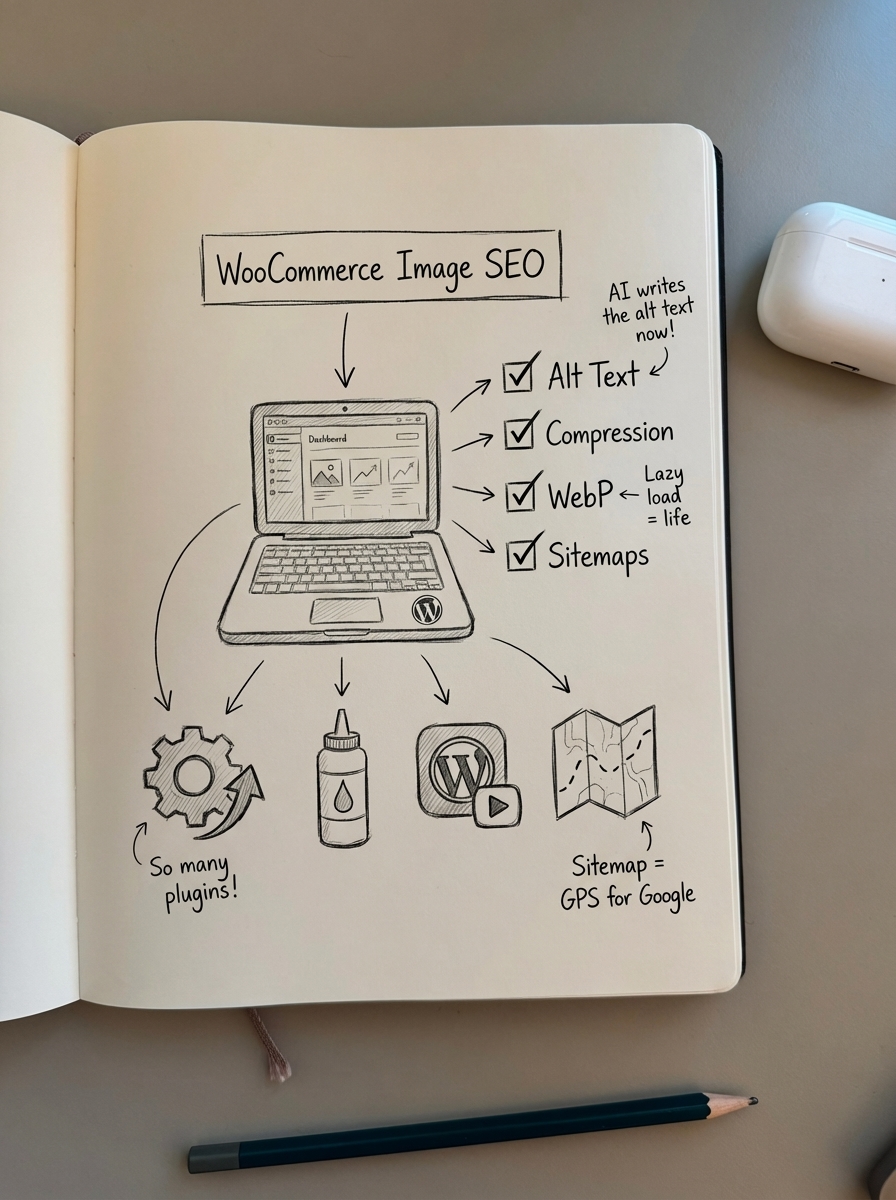 WooCommerce Image SEO
AI writes
the alt text
now!
Alt Text
Compression
WebP
Lazy
load
= life
Sitemaps
Dashboard
W
W
So many
plugins!
Sitemap =
GPS for Google